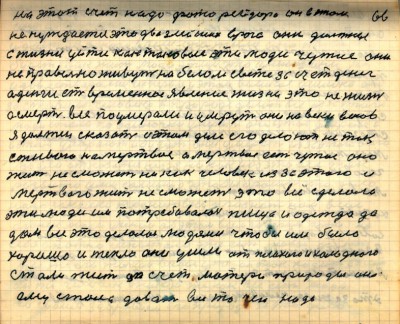 на этот счет надо фото репдора он в этом 66
не нуждается это два злейших врага они должны
с жизни уйти как таковые эти люди чужие они
не правельно живут на белом свете за счет денег
а денги ст временное явление жизни это не жизн
а смерт. все поумерали и умрут они на веки веков
я должен сказать о этом деле его делают не так
солнышко на мертвое а мертвое ест чужое оно
жит не сможет ни как человек из за этого и
мертвого жит не сможет это всё сделала
эти люди им потребавалас пища и одежда да
дом все это делалос людями чтобы им было
харашо и тепло они ушли от плохого и холодного
стали жит за счет матери природы она
ему стала давать все то чей надо